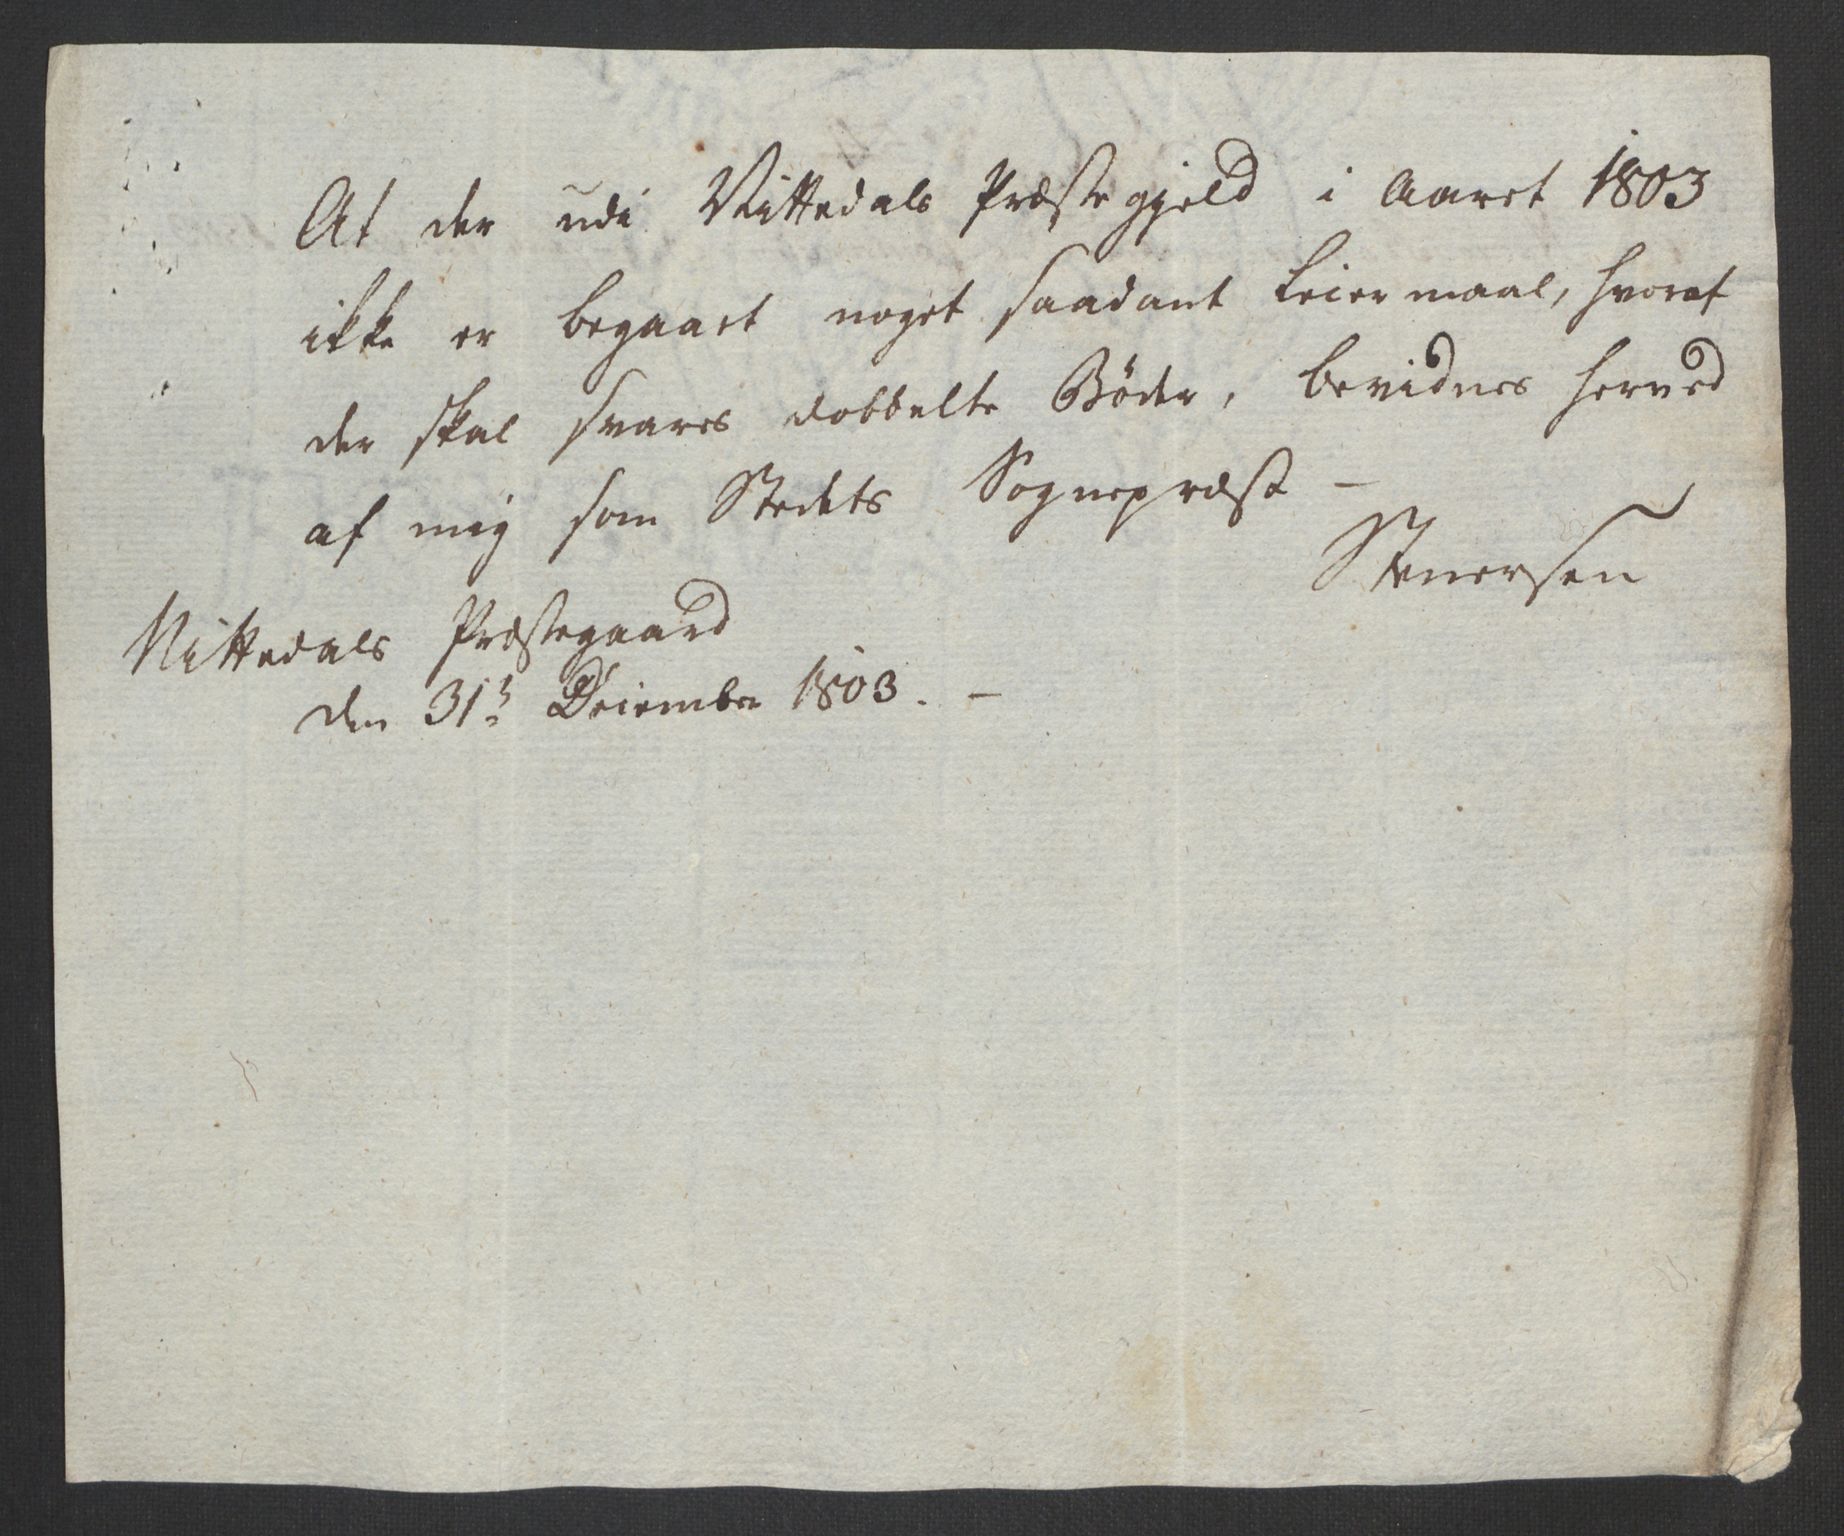 At der udi Nittedals Præstegjeld i Aaret 1803
ikke er begaaet noget saadant Leiermaal, hvoraf
der skal svares dobbelte Böder, bevidnes herved
af mig som Stedets Sognepræst –
Stenersen
Nittedals Præstegaard
den 31t December 1803. –